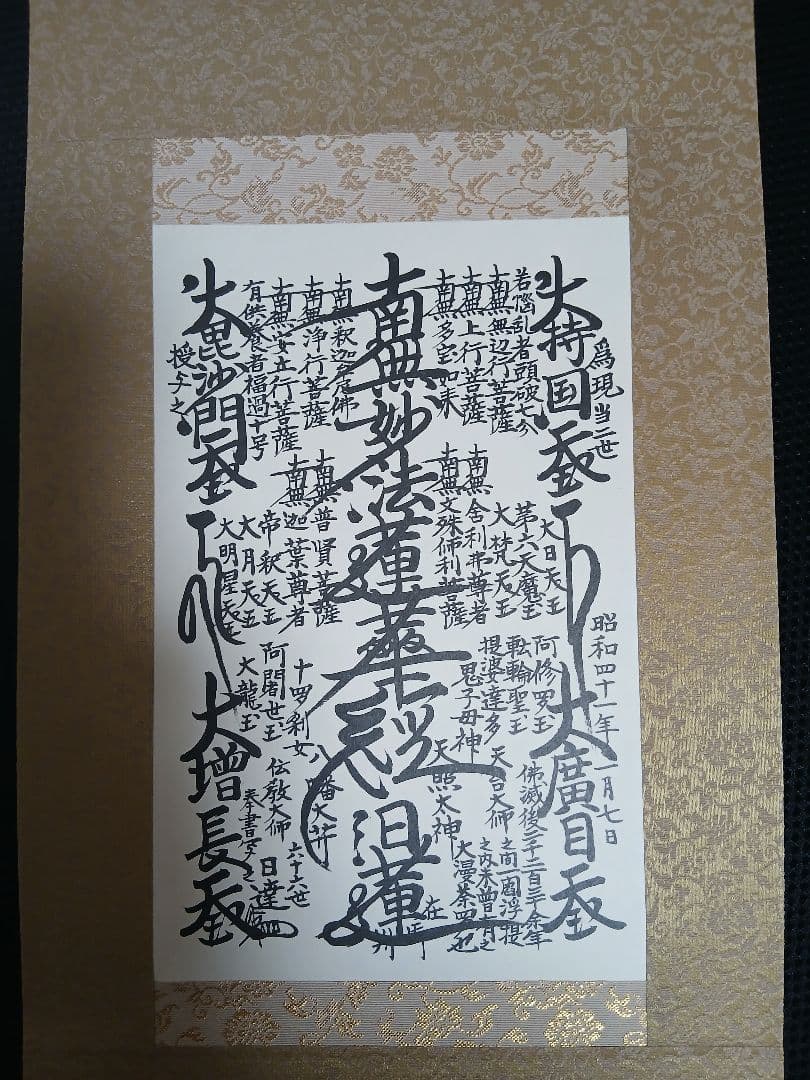 為現当二世
昭和四十一年一月七日
大持国天王
大廣目天王
若悩乱者頭破七分
南無無辺行菩薩
南無上行菩薩
南無多宝如来
南無妙法蓮華経
日蓮
在御判
南無釈迦牟尼佛
南無浄行菩薩
南無安立行菩薩
有供養者福過十号
大毘沙門天王
授与之
大日天王
第六天魔王
大梵天王
南無舎利弗尊者
南無文殊師利菩薩
南無普賢菩薩
南無迦葉尊者
帝釈天王
大月天王
大明星天王
阿修羅王
転輪聖王
提婆達多
鬼子母神
十羅刹女
阿闍世王
大龍王
天台大師
天照太神
八幡大菩薩
伝教大師
佛滅後二千二百三十余年
之間一閻浮提
之内未曾有之
大漫荼羅也
六十六世
日達
奉書写之
大増長天王